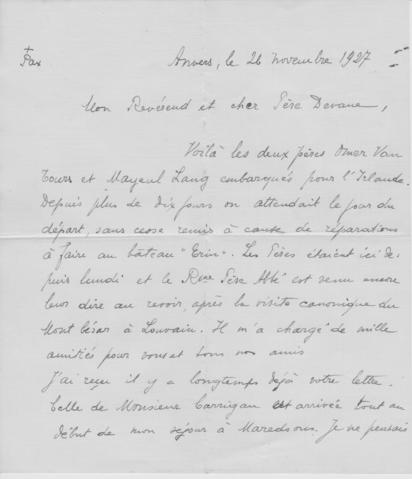 +
Pax
Anvers, le 26 novembre 1927
Mon Revérend et cher Père Devane,
Voilà les deux pères Omer Van
Tours et Mayeul Lang embarqués pour l'Irlande.
Depuis plus de dix jours on attendait le jour du
départ, sans cesse remis à cause de réparations
à faire au bâteau "Erin". Les Pères étaient ici de-
puis lundi et le Rme Père Abbé est venu encore
leur dire au revoir, après la visite canonique du
Mont César à Louvain. Il m'a chargé de mille
amitiés pour vous et tous nos amis
J'ai reçu il y a longtemps déjà votre lettre.
Celle de Monsieur Carrigan est arrivée tout au
début de mon séjour à Maredsous. Je ne pensais